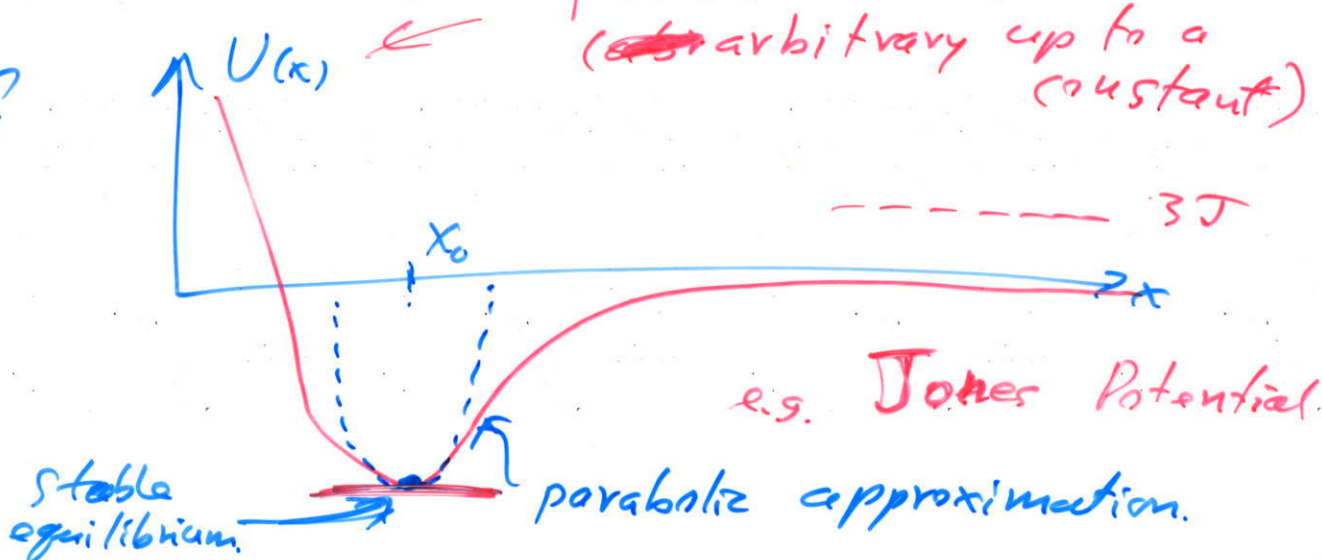 U(x)
(arbitrary up to a
constant)
3J
x₀
x
e.g. Jones Potential.
stable
equilibrium.
parabolic approximation.